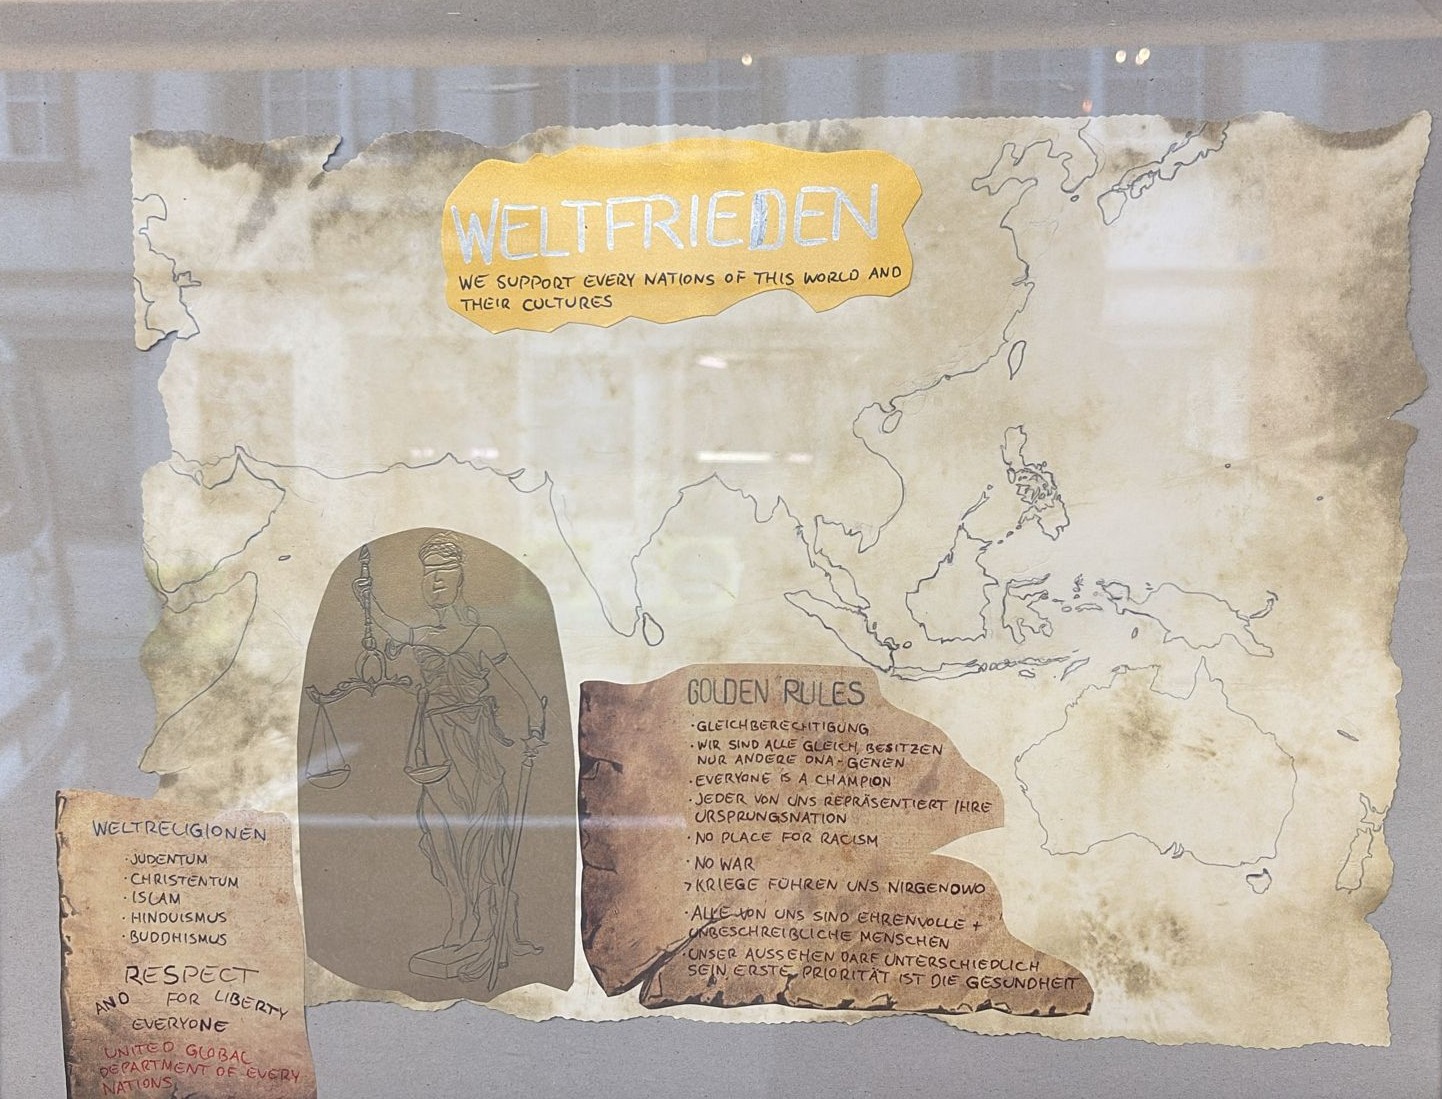 WELTFRIEDEN
WE SUPPORT EVERY NATIONS OF THIS WORLD AND
THEIR CULTURES
GOLDEN RULES
·GLEICHBERECHTIGUNG
·WIR SIND ALLE GLEICH, BESITZEN
NUR ANDERE DNA-GENEN
·EVERYONE IS A CHAMPION
·JEDER VON UNS REPRÄSENTIERT IHRE
URSPRUNGSNATION
·NO PLACE FOR RACISM
·NO WAR
>KRIEGE FÜHREN UNS NIRGENDWO
·ALLE VON UNS SIND EHRENVOLLE +
UNBESCHREIBLICHE MENSCHEN
·UNSER AUSSEHEN DARF UNTERSCHIEDLICH
SEIN, ERSTE PRIORITÄT IST DIE GESUNDHEIT
WELTRELIGIONEN
·JUDENTUM
·CHRISTENTUM
·ISLAM
·HINDUISMUS
·BUDDHISMUS
RESPECT
AND FOR LIBERTY
EVERYONE
UNITED GLOBAL
DEPARTMENT OF EVERY
NATIONS